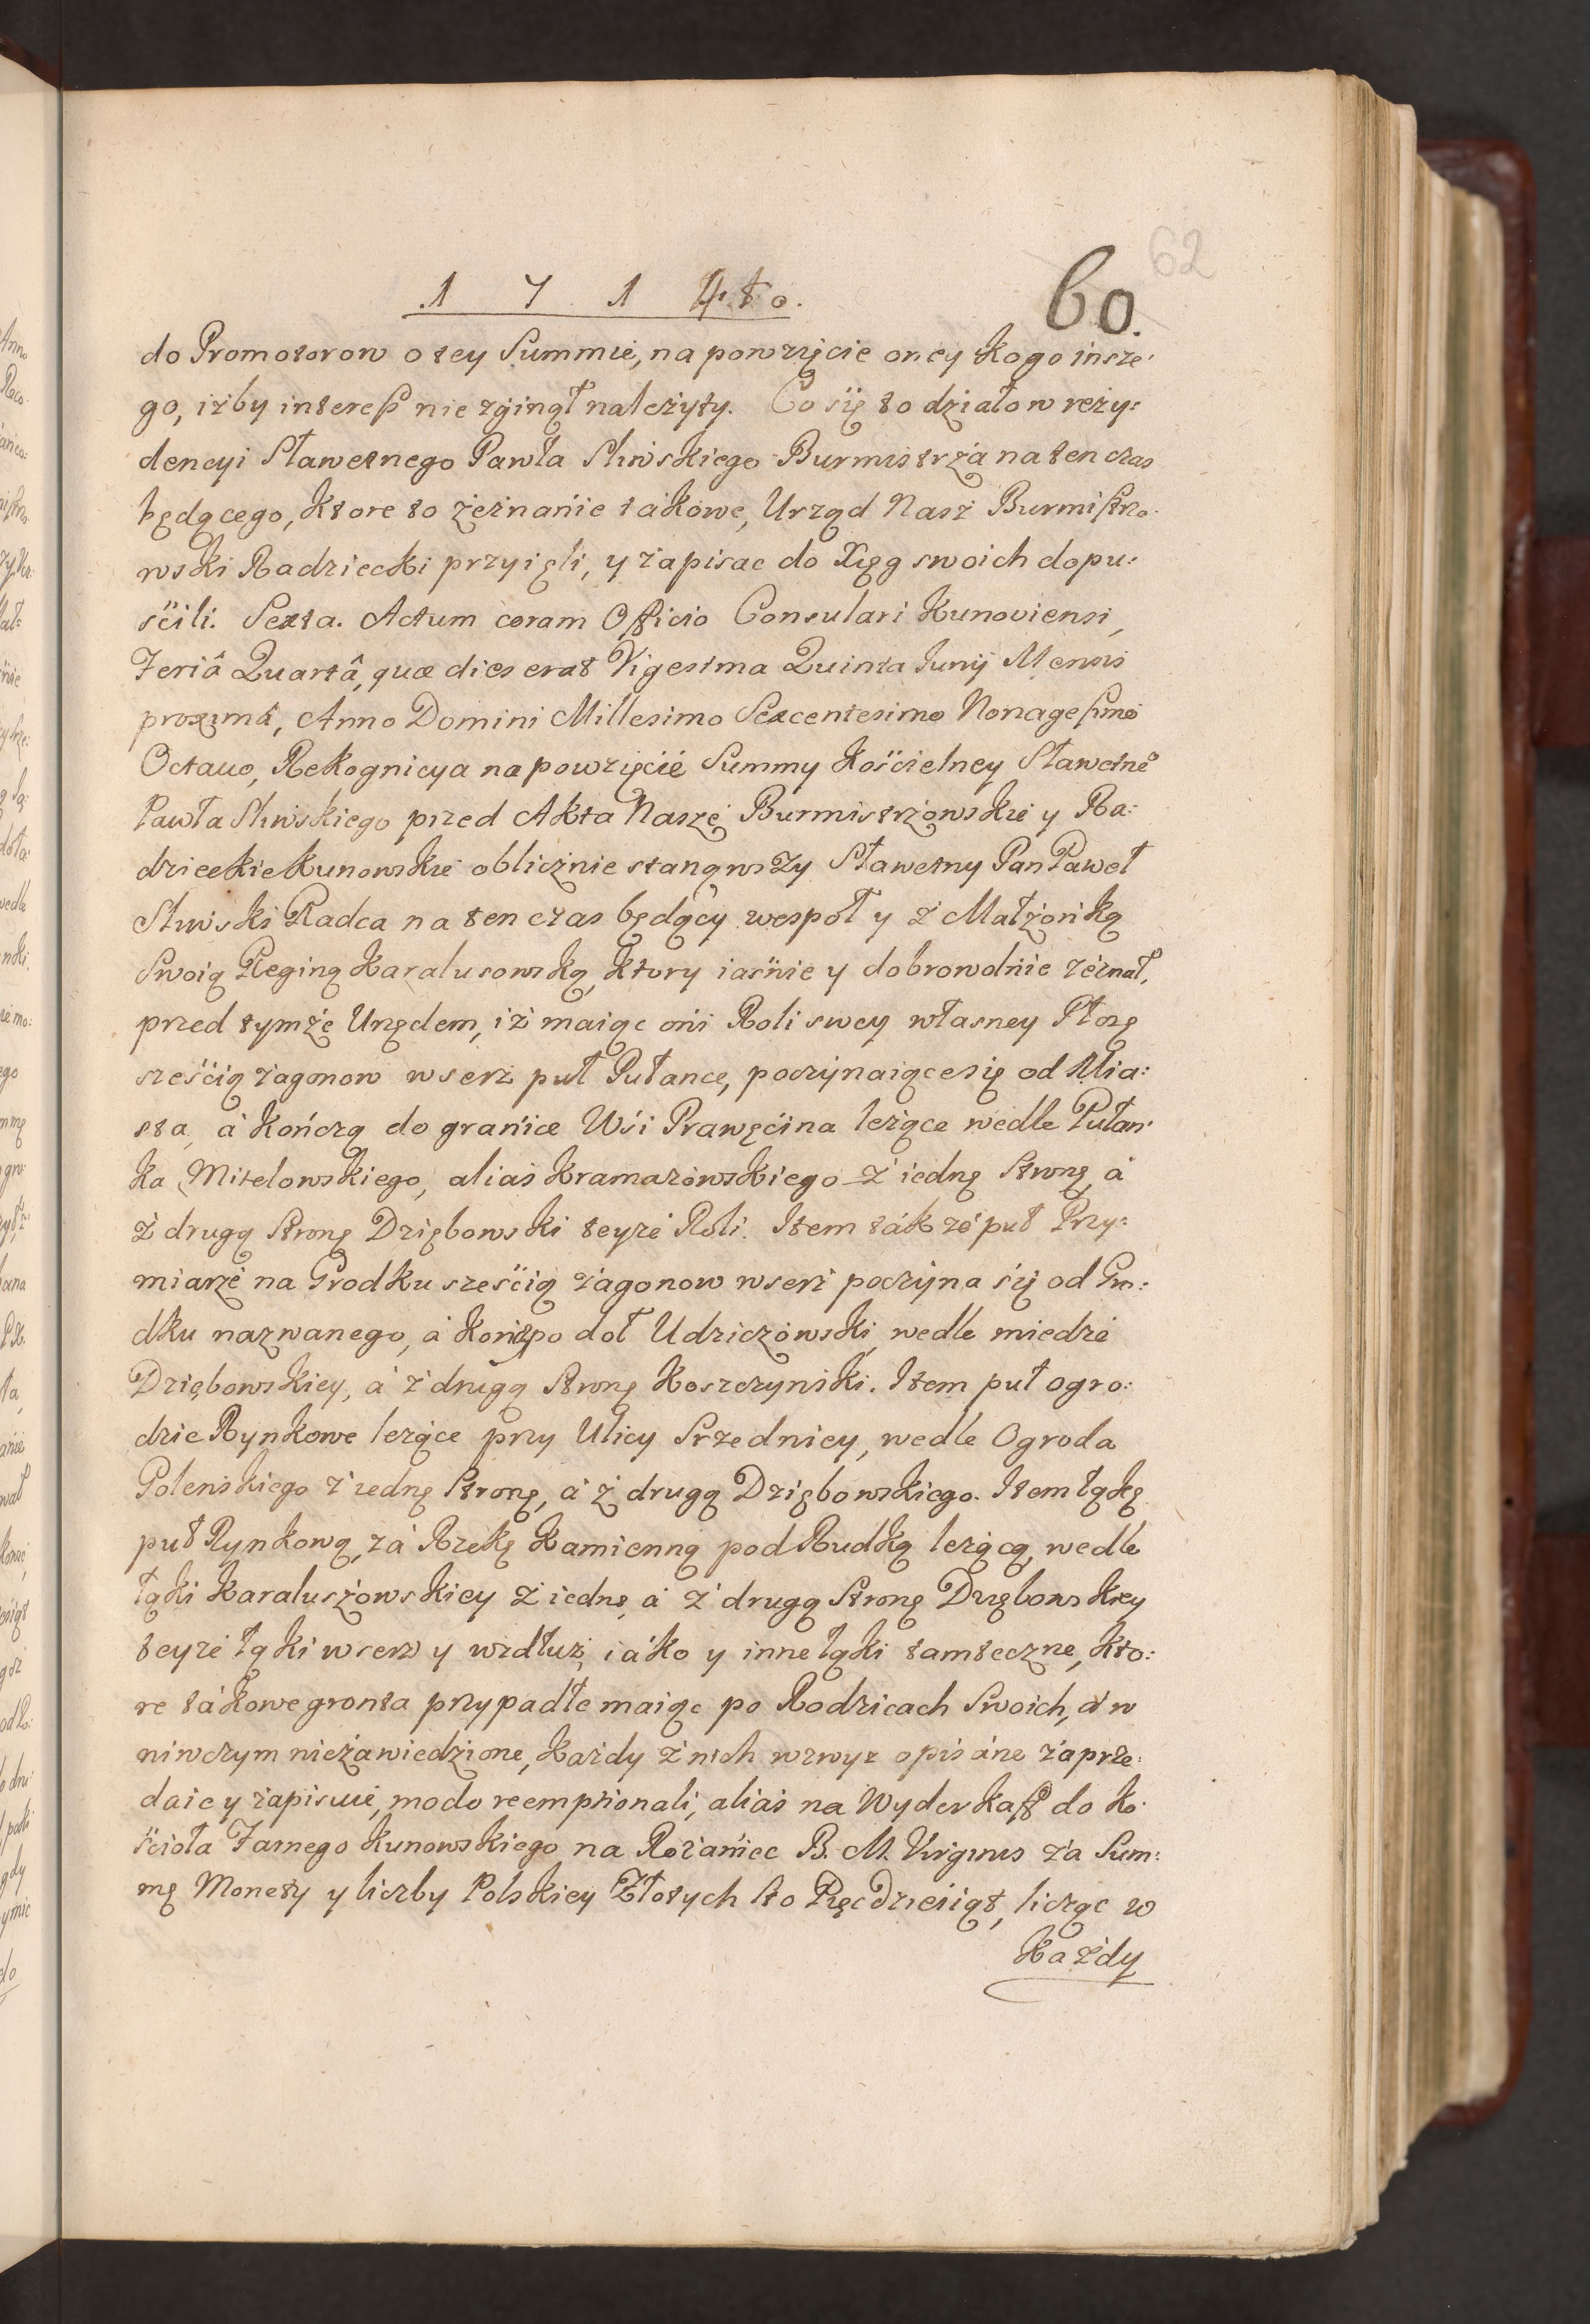 62
1 7 1 4to.
60.
do Promotorow o tey Summie, na powzięcie oney kogo insze:
go, iżby interess nie zginął należyty. Co się to działo w rezy:
dencyi Sławetnego Pawła Sliwskiego Burmistrza na ten czas
będącego, ktore to zeznanie takowe, Urząd Nasz Burmistrzo:
wski Radziecki przyięli, y zapisac do Xięg swoich dopu:
scili. Sexta. Actum coram Officio Consulari Kunoviensi,
Feriâ Quartâ, quæ dies erat Vigesima Quinta Junij Mensis
proxima, Anno Domini Millesimo Sexcentesimo Nonagesimo
Octauo, Rekognicya na powzięcie Summy Kościelney Sławetne
Pawła Sliwskiego przed Akta Nasze Burmistrzowskie y Ra:
dzieckie Kunowskie oblicznie stanąwszy Sławetny Pan Paweł
Sliwski Radca na ten czas będący wespoł y z Małżonką
Swoią Reginą Karalusowską, ktory iaśnie y dobrowolnie zeznał,
przed tymże Urzędem, iż maiąc oni Roli swey własney Płozę
sześcią zagonow wserz puł Pułance, poczynaiące się od Mia:
sta, á kończą do granice Wśi Prawęcina leżące wedle Pułan:
ka Mitelowskiego, alias Kramarowskiego z iedne Strone, á
z drugą Strone Dziębowski teyże Roli. Item tákże puł Przy:
miarze na Grodku sześcią zagonow wserz poczyna się od Gro:
dku nazwanego, á kończ po doł Udziczowski, wedle miedze
Dziębowskiey, á z drugą Strone Koszczynski. Item puł ogro:
dzie Rynkowe leżące przy Ulicy Srzedniey, wedle Ogroda
Polenskiego z iedne Strone, á z drugą Dziębowskiego. Item łąkę
puł Rynkową, zá Rzekę Kamienną pod Rudką leżącą, wedle
łąki Karaluszowskiey z iedne, á z drugą Strone Dziębowskiey
teyże łąki wserz y wzdłuż, iáko y inne łąki tamteczne, kto:
re tákowe gronta przypadłe maiąc po Rodzicach Swoich, á w
niwczym niezawiedzione, każdy z nich wzwyz opisáne zaprze:
daie y zapisuie, modo reemptionali, alias na Wyderkaff do Ko:
ścioła Farnego Kunowskiego na Rożaniec B. M. Virginis za Sum:
mę Monety y liczby Polskiey Złotych sto Pięcdziesiąt, licząc w
Każdy